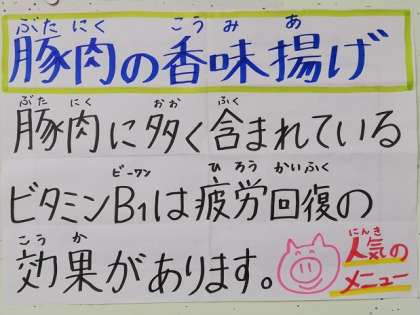 ぶたにく こうみ あ
豚肉の香味揚げ
ぶた にく おお ふく
豚肉に多く含まれている
ビーワン ひろう かいふく
ビタミンB1は疲労回復の
こうか
効果があります。
にんき
人気の
メニュー